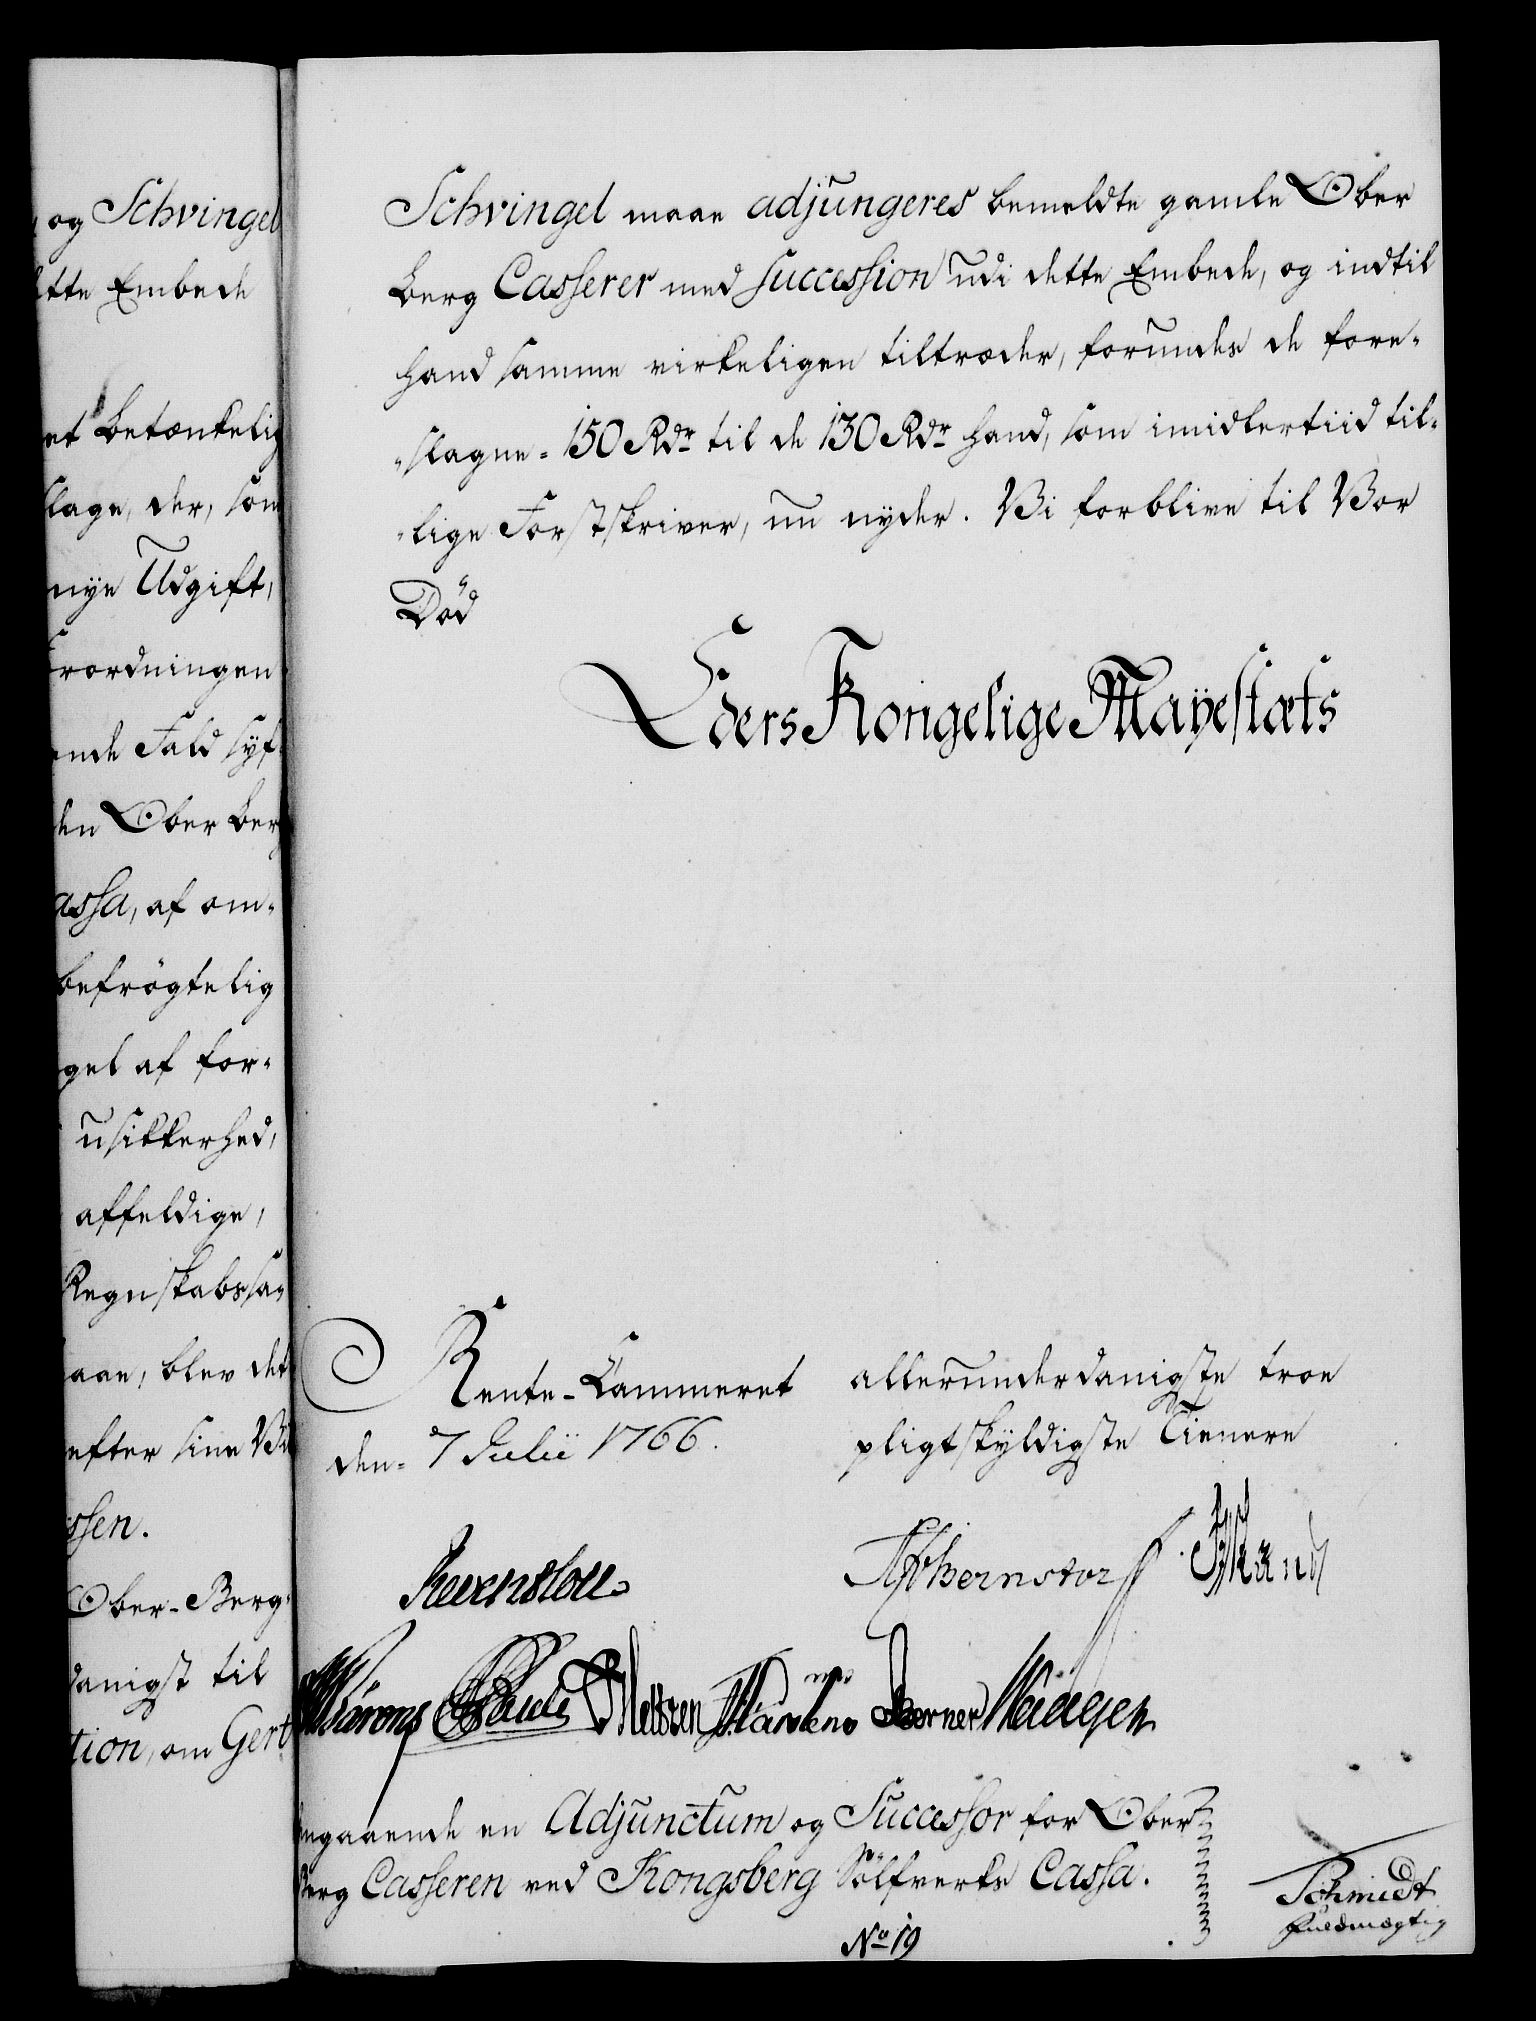 og Schvingel
tte Embede
et Betænkelig
slage, der, som
nye Udgift,
rordningen
ende Fald syf
den Ober Berg
assa, af om-
befrögtelig
gel af for-
usikkerhed,
affeldige,
Regnskabssa-
aae, blev det
efter sine
ssen.
Ober-Berg-
danigst til
tion, om Gert
Schvingel maae adjungeres bemeldte gamle Ober
Berg Casserer med Succession udi dette Embede, og indtil
hand samme virkeligen tiltræder, forundes de fore-
slagne 150 Rdr til de 130 Rdr hand, som imidlertiid til-
lige Forstskriver, nu nyder. Vi forblive til Vor
Död
Eders Kongelige Mayestæts
Rente-Cammeret
den 7 Julii 1766.
allerunderdanigste troe
pligtskyldigste Tienere
Reventlou
Bernstorff
angaaende en Adjunctum og Successor for Ober
Berg Casseren ved Kongsberg Sölfverks Cassa.
No 19
Schmidt
fuldmægtig